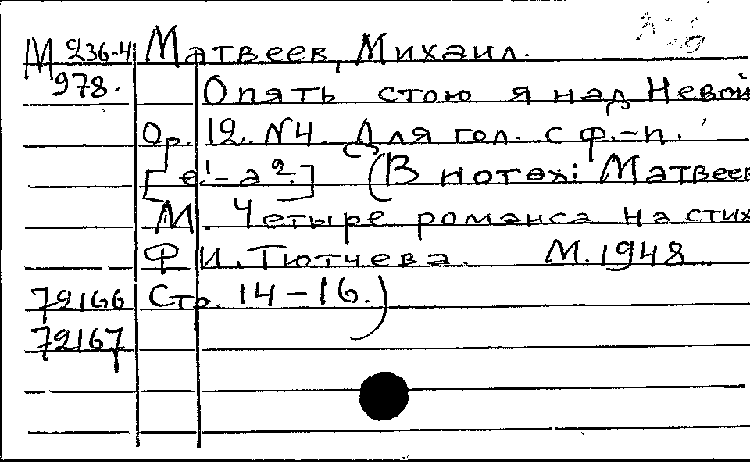 М 236-4 Матвеев, Михаил.
978. Опять стою я над Невой
Ор. 12. N4. Для гол. с ф.-п.
[e¹-a².] (В нотах: Матвеев
М. Четыре романса на стих
Ф.И. Тютчева. М. 1948
72166 Стр. 14-16.)
72167